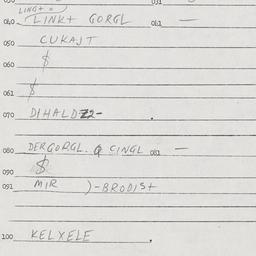 040 LINK+ GORGL 041 —
050 CUKAJT
060 $
061 $
070 DIHALDZ2-
080 DERGORGL. Q CINGL 081 —
090 $
091 MIR )-BRODIS+
100 KELXELE